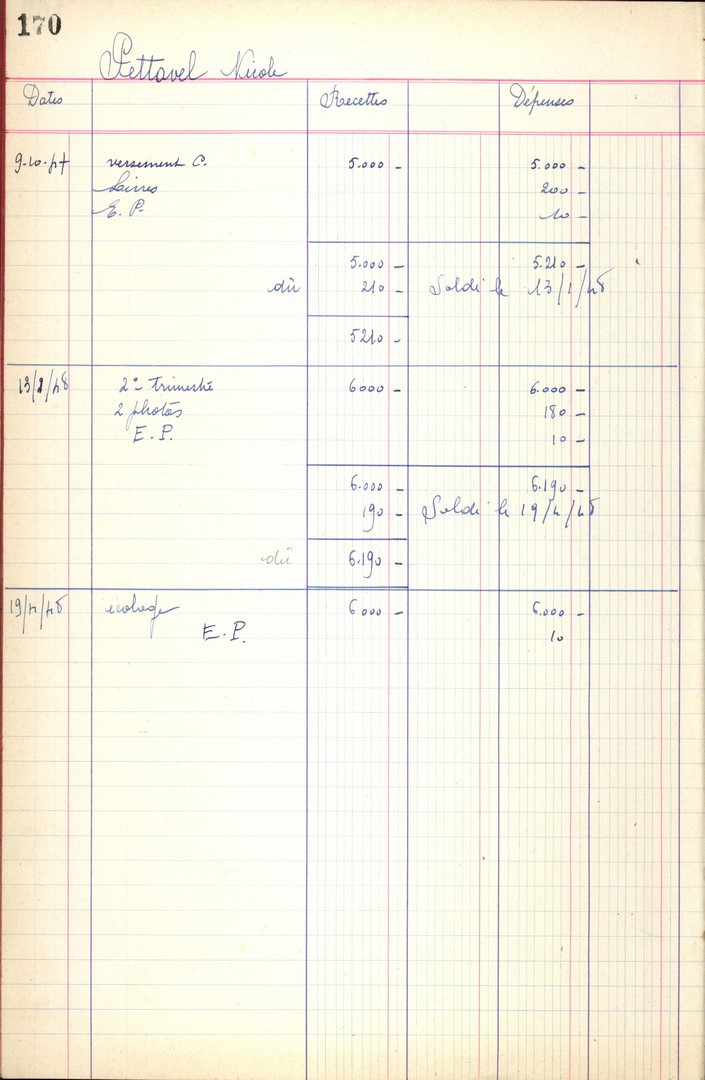 170
Pettavel Nicole
Dates Recettes Dépenses
9.10.47 versement C. 5.000 - 5.000 -
Livres 200 -
E. P. 10 -
5.000 - 5.210 -
dû 210 - Soldé le 13/1/48
5210 -
13/1/48 2e trimestre 6000 - 6.000 -
2 photos 180 -
E. P. 10 -
6.000 - 6.190 -
190 - Soldé le 19/4/48
dû 6.190 -
19/4/48 écolage 6000 - 6.000 -
E. P. 10